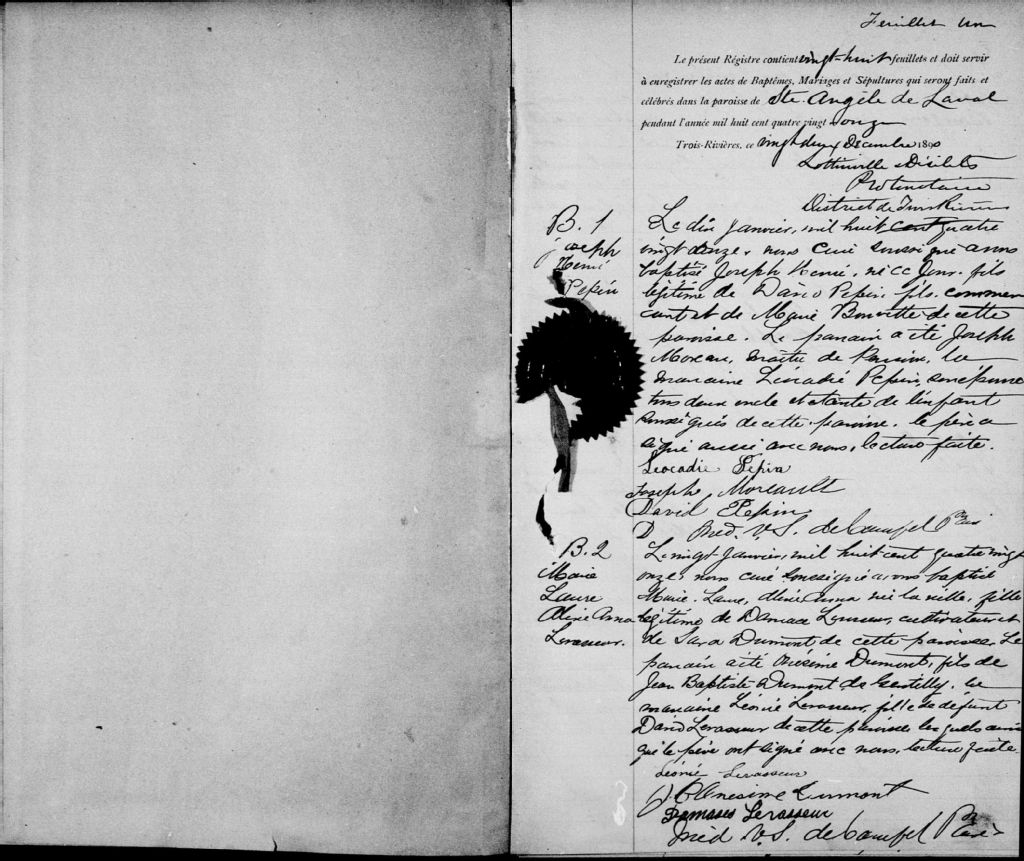 Feuillet un
Le présent Régistre contient vingt-huit feuillets et doit servir
à enregistrer les actes de Baptêmes, Mariages et Sépultures qui seront faits et
célébrés dans la paroisse de Ste. Angèle de Laval
pendant l'année mil huit cent quatre vingt onze
Trois-Rivières, ce vingt deux Décembre 1890
Lottinville & Désilets
Protonotaire
District de Trois Rivières
B. 1
Joseph
Henri
Pepin
Le dix Janvier, mil huit cent quatre
vingt onze, nous curé soussigné avons
baptisé Joseph Henri, né ce jour, fils
légitime de David Pepin, fils, commer
cant et de Marie de cette
paroisse. Le parrain a été Joseph
Moreau, de la
marraine Léocadie Pepin, son épouse
tous deux oncle et tante de l'enfant
de cette paroisse. le père a
signé aussi avec nous, lecture faite.
Leocadie Pepin
Joseph Moreault
David Pepin
D V. S. de Ptre
B. 2
Marie
Laure
Aline Anna
Levasseur.
Le vingt Janvier, mil huit cent quatre vingt
onze, nous curé soussigné avons baptisé
Marie, Laure, Aline Anna née la veille, fille
légitime de Damase Levasseur, cultivateur et
de Sara Dumont de cette paroisse. Le
parrain a été Onésime Dumont, fils de
Jean Baptiste Dumont de Gentilly. la
marraine Léonie Levasseur, fille de défunt
David Levasseur de cette paroisse lesquels ainsi
que le père ont signé avec nous, lecture faite.
Léonie Levasseur
Onesime Dumont
Damase Levasseur
V. S. de Ptre